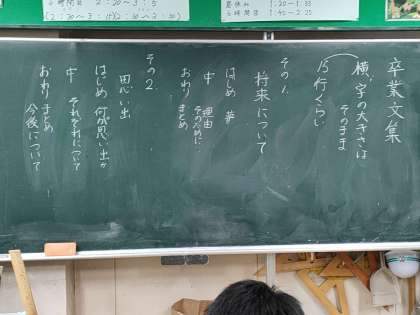 卒業文集
横、字の大きさは
そのまま
15行くらい
その1.
将来について
はじめ 夢
中 理由
そのために
おわり まとめ
その2.
思い出
はじめ 何が思い出か
中 それぞれについて
おわり まとめ
今後について
6時間目 2:20~3:15
1:20~1:35
6時間目 1:40~2:25